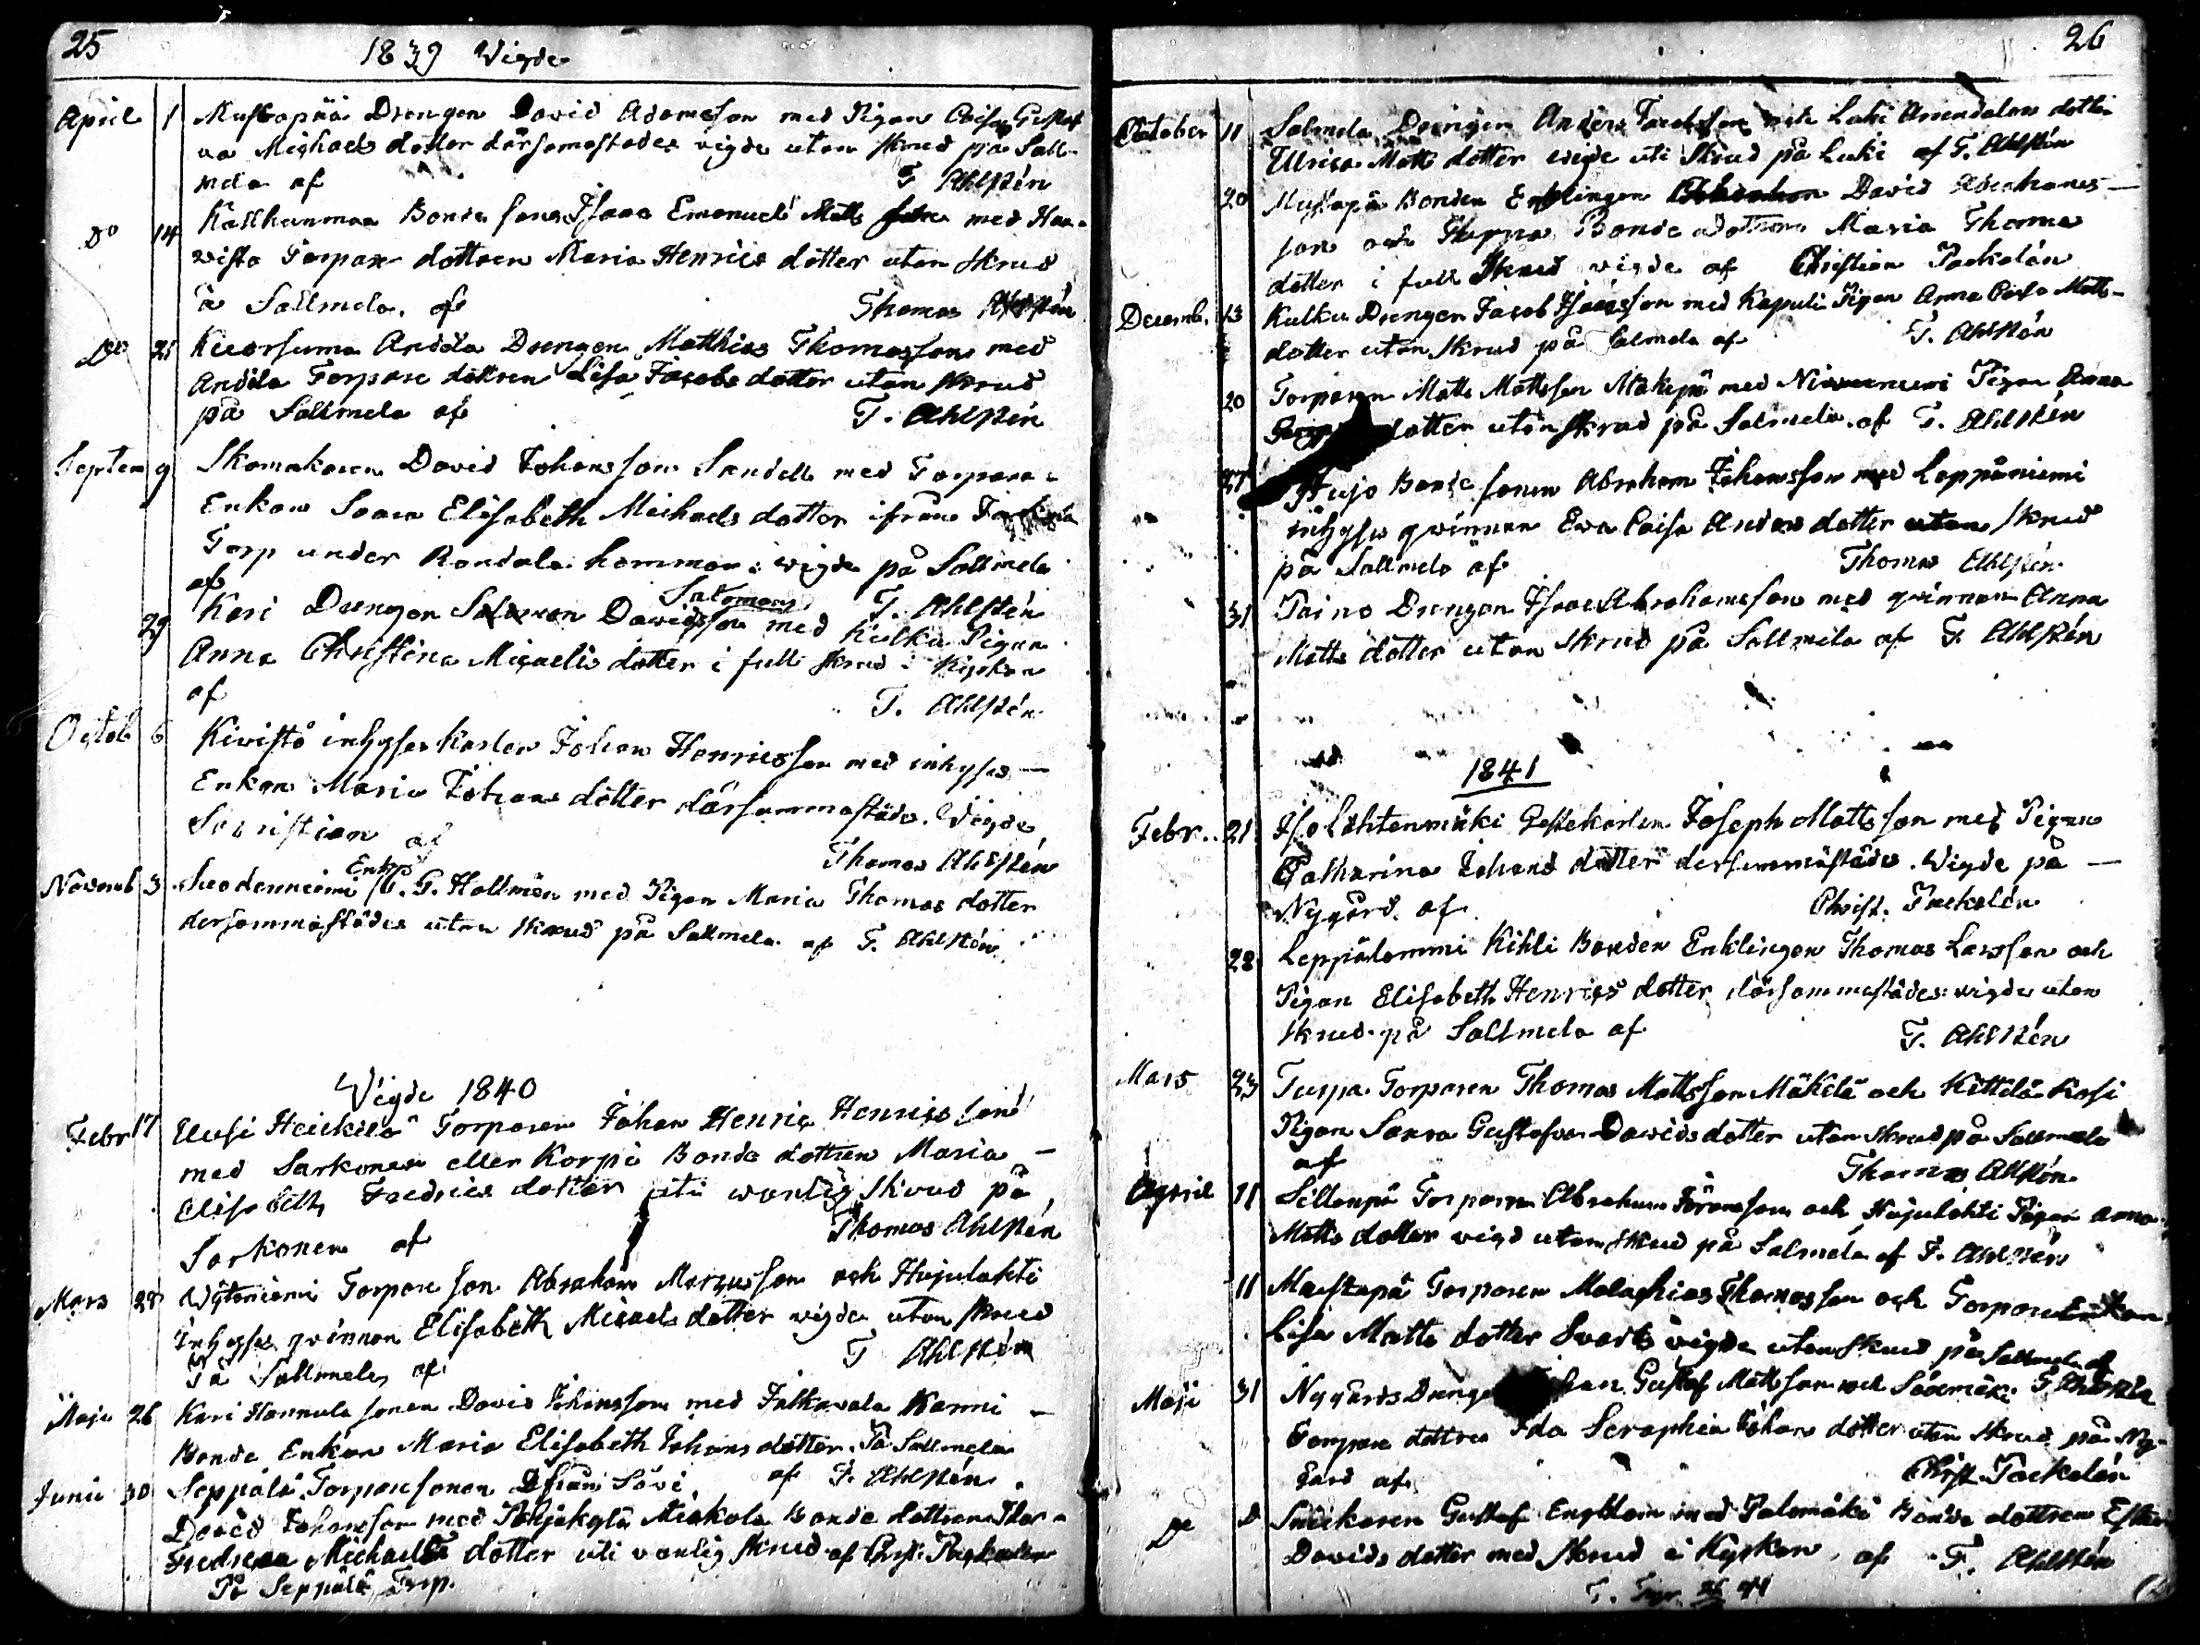 25
1839 Vigde
April 1 Mustapää Drengen David Adamsson med Pigan Caisa Gusta
va Michaels dotter därsamastädes vigde utan skrud på Sall-
mela af T Ahlstén
Do 14 Kallhunmaa Bonde sonen Isaac Emanuel Matts med Han-
visto Torpare dottren Maria Henrics dotter utan skrud
å Sallmela. af Thomas Ahlstén
Do 25 Anddla Drengen Matthias Thomasson med
Anddla Torpare dottren Lisa Jacobs dotter utan skrud
på Sallmela af T. Ahlstén
Septem 9 Skomakaren David Johansson Sandell med Torpare
Enkan Saara Elisabeth Michaels dotter ifrån
Torp under hemman: vigde på Sallmela
af T. Ahlstén
29 Kari Drengen Salomon Davidsson Salomons med Kulku Pigan
Anna Christina Micaels dotter i full skrud i Kyrkan
af T. Ahlstén
Octob 6 Kivistö inhyses Karlen Johan Henricsson med inhyses —
Enkan Maria Johans dotter därsammastäds. Vigde
Sacristian af Thomas Ahlstén
Novemb 3 Enkl C. G. Hallmén med Pigan Maria Thomas dotter
dersammastädes utan skrud på Sallmela af T. Ahlstén
Vigde 1840
Febr 17 Uusi Heickilä Torparen Johan Henric Henrics son
med Sarkonen eller Korpi Bonde dottren Maria —
Elisabeth Fredrics dotter uti wanlig Skrud på
Sarkonen af Thomas Ahlstén
Mars 28 Torpare son Abraham Marcusson och Hujulahti
Inhyses qvinnan Elisabeth Micaels dotter vigde utan skrud
På Sallmela af T Ahlstén
Maji 26 Kari Hannula sonen David Johansson med Jalkavala Hanni —
Bonde Enkan Maria Elisabeth Johans dotter. På Sallmela
af T. Ahlstén
Junii 30 Seppälä Torpare sonen Ifrån Sävi,
David Johansson med Pohjakylä Mickola Bonde dottren
Fredrica Michaels dotter uti vanlig skrud af Christ. Packalén
På Seppälä Torp.
26
October 11 Salmela Drengen Anders Jacobsson och Luki Arrendators dotter
Ulrica Matts dotter vigde uti Skrud på Luki af T. Ahlstén
20 Mustapä Bonden Enklingen David Abrahams —
son och Bonde dottren Maria Thomas
dotter i full Skrud vigde af Christian Packalén
Decemb. 13 Kulku Drengen Jacob Isacsson med Kapuli Pigan Anna Caisa Matts-
dotter utan skrud på Salmela af T. Ahlstén
20 Torparen Matts Mattsson Mäkipä med Pigan Anna
dotter utan Skrud på Salmela. af T. Ahlstén
27 Hujo Bonde sonen Abraham Johansson med Leppäniemi
inhyses qwinnan Eva Caisa Anders dotter utan skrud
på Sallmela af Thomas Ahlstén
31 Paino Drengen Isaac Abrahamsson med qvinnan Anna
Matts dotter utan skrud på Sallmela af T. Ahlstén
1841
Febr. 21 Iso Lähtenmäki Gestekarlen Joseph Mattsson med Pigan
Catharina Johans dotter dersammastäds. Vigde på —
Nygård. af Christ. Packalén
28 Leppälammi Kihli Bonden Enklingen Thomas Larsson och
Pigan Elisabeth Henrics dotter därsammastädes. vigde utan
skrud på Sallmela af T. Ahlstén
Mars 23 Turpa Torparen Thomas Mattsson Mäkelä och Kittilä Kasi
Pigan Saara Gustafva Davids dotter utan skrud på Sallmela
af Thomas Ahlstén
April 11 Sillanpä Torparen Abraham Göransson och Hujulahti Pigan Anna
Matts dotter vigd utan skrud på Salmela af T. Ahlstén
11 Mustapä Torparen Malachias Thomasson och Torpare Enkan
Lisa Matts dotter Svarts vigde utan skrud på Sallmela af
T. Ahlstén
Maji 31 Nygårds Drengen Johan Gustaf Mattsson och Södermäki
Torpare dottren Ida Seraphia Johans dotter utan skrud på Ny-
gård af Christ. Packalén
De D Snickaren Gustaf Engblom med Palomäki Bonde dottren Ester
Davids dotter med skrud i Kyrkan, af T. Ahlstén